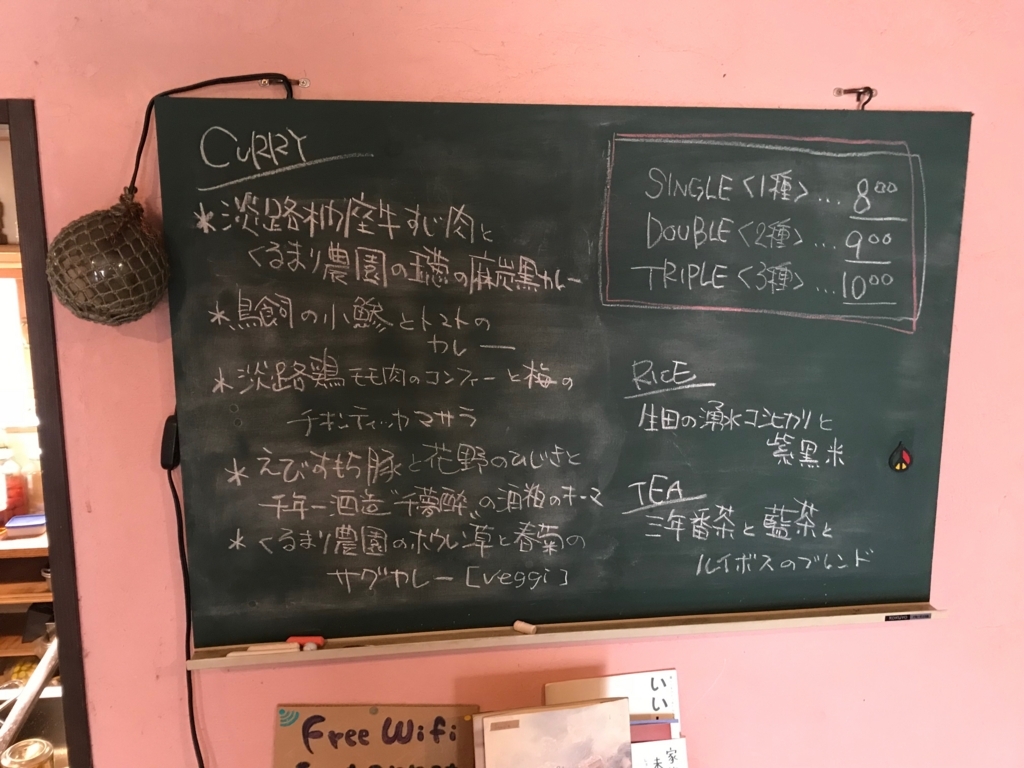 CURRY
*淡路和牛すじ肉と
くるまり農園の玉葱の麻炭黒カレー
*鳥飼の小鯵とトマトの
カレー
*淡路鶏モモ肉のコンフィーと梅の
チキンティッカマサラ
*えびすもち豚と花野のひじきと
千年一酒造"千夢酔"の酒粕のキーマ
*くるまり農園のホウレン草と春菊の
サグカレー[veggi]
SINGLE〈1種〉...800
DOUBLE〈2種〉...900
TRIPLE〈3種〉...1000
RICE
生田の湧水コシヒカリと
紫黒米
TEA
三年番茶と藍茶と
ルイボスのブレンド
Free Wifi
いい
家